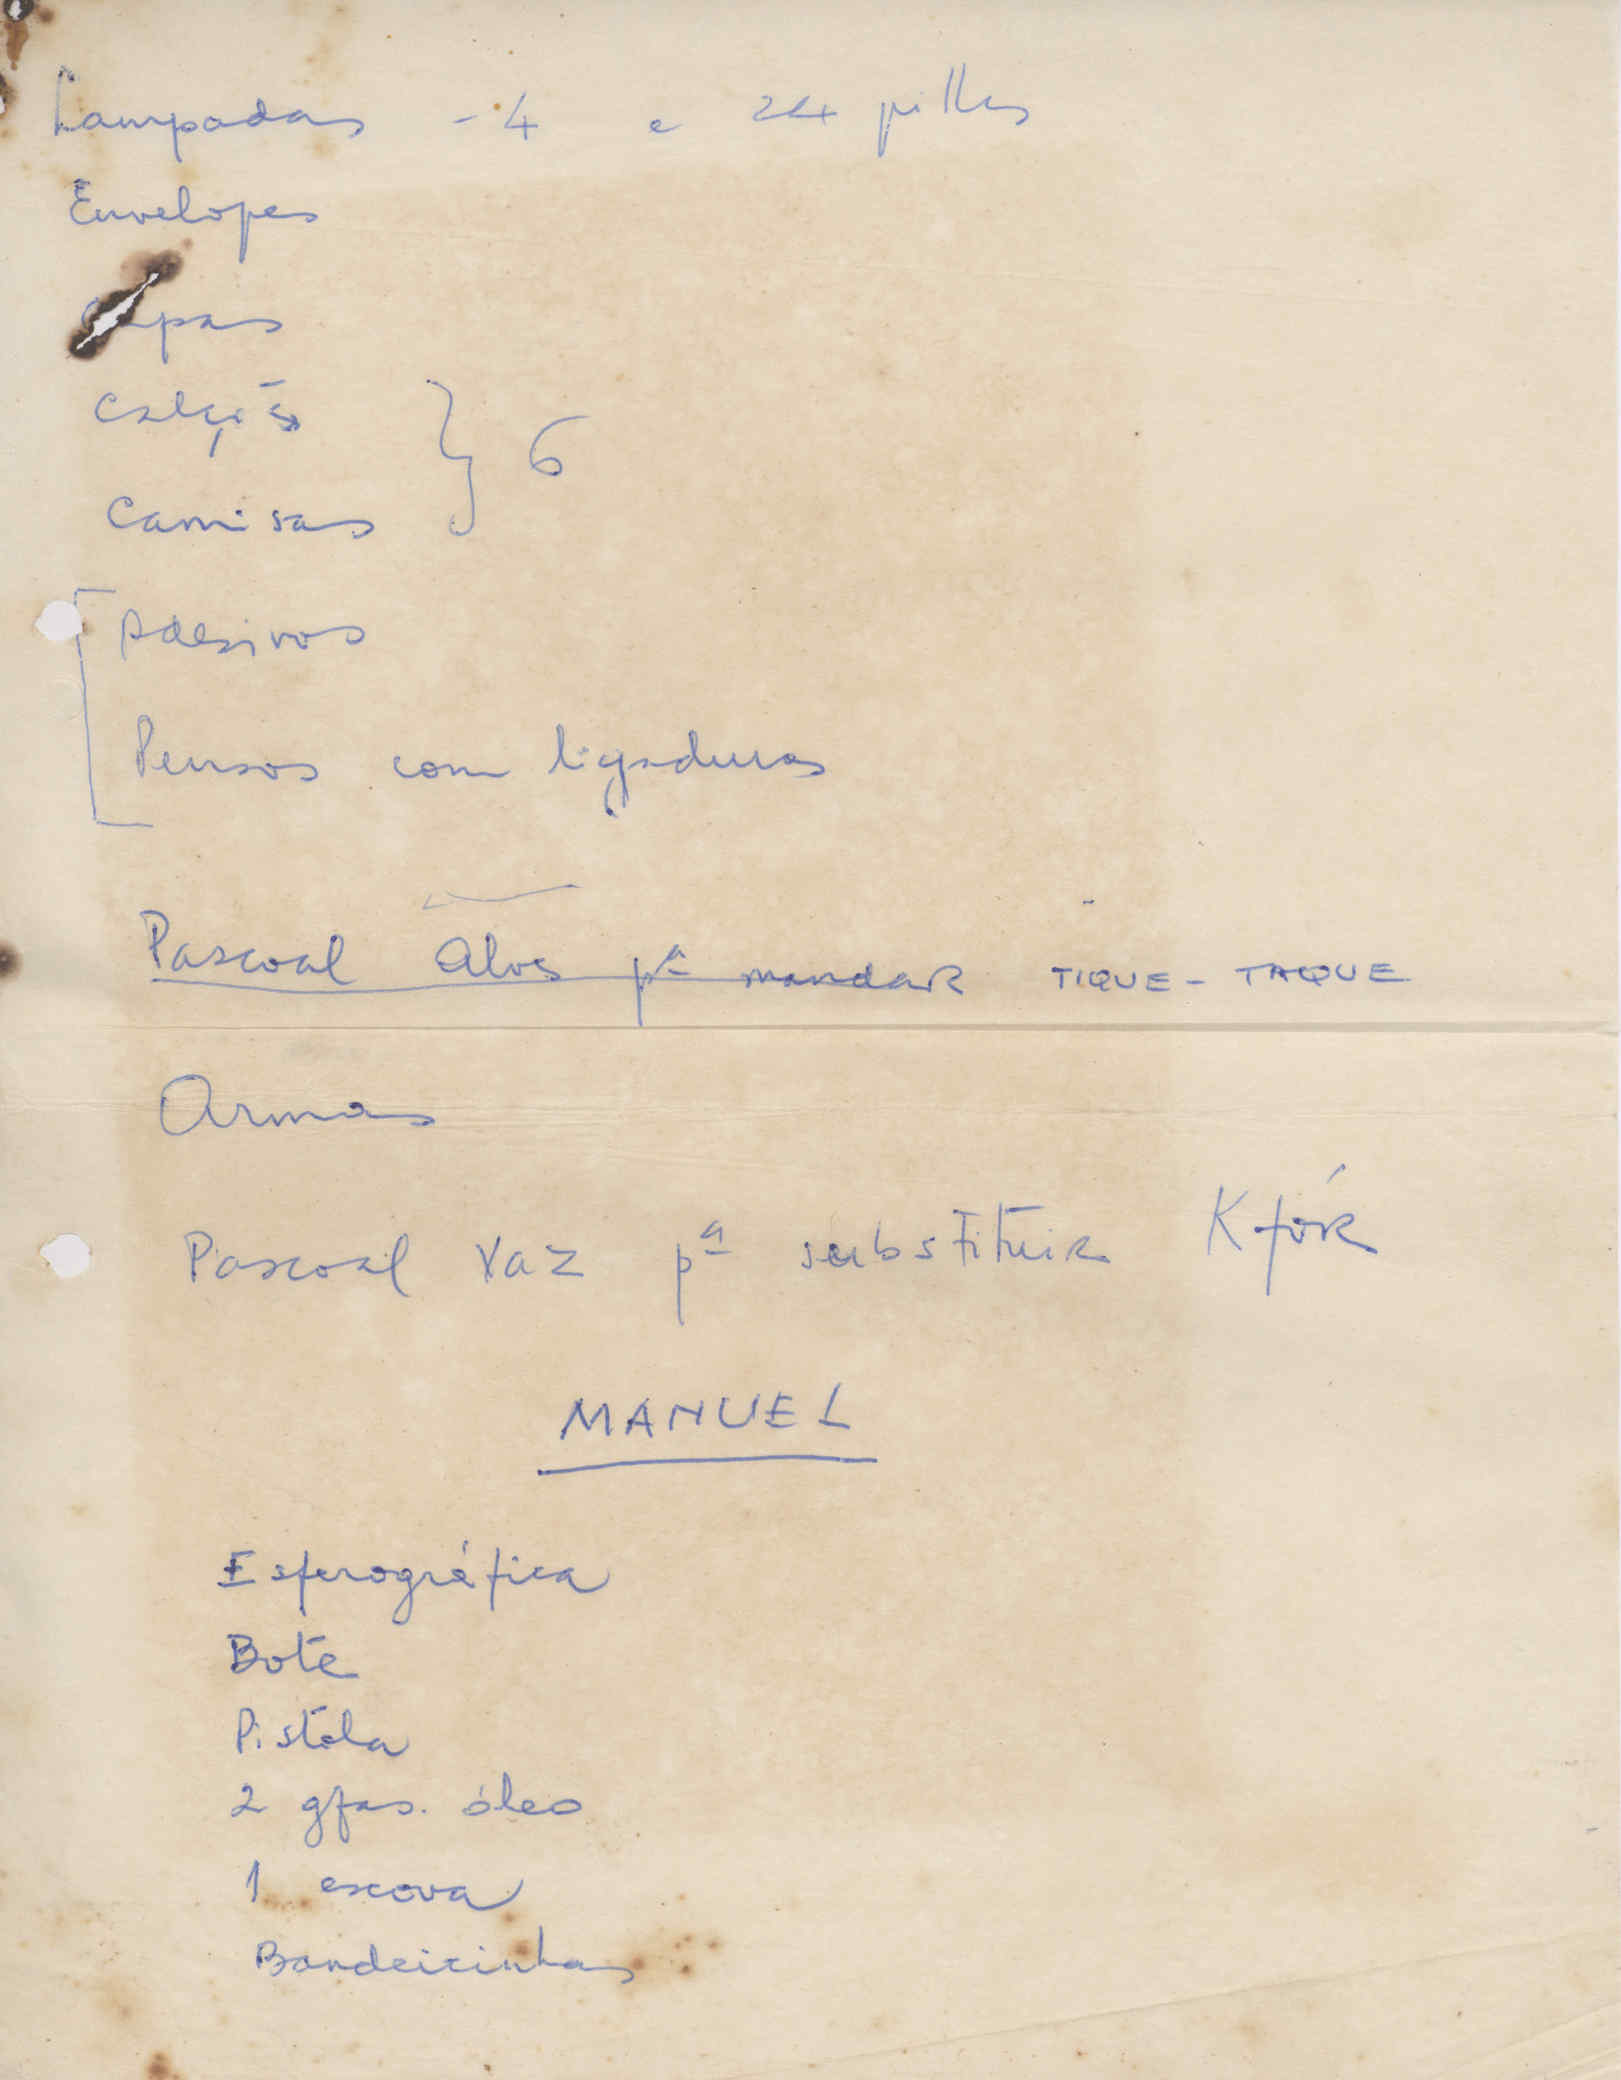 Lampadas - 4 e 24 pilhas
Envelopes
Capas
Calções
Camisas } 6
Adesivos
Pensos com ligaduras
Pascoal Alves pª mandar TIQUE-TAQUE
Armas
Pascoal Vaz pª substituir
MANUEL
Esferográfica
Bote
Pistola
2 gfas. óleo
1 escova
Bandeirinhas